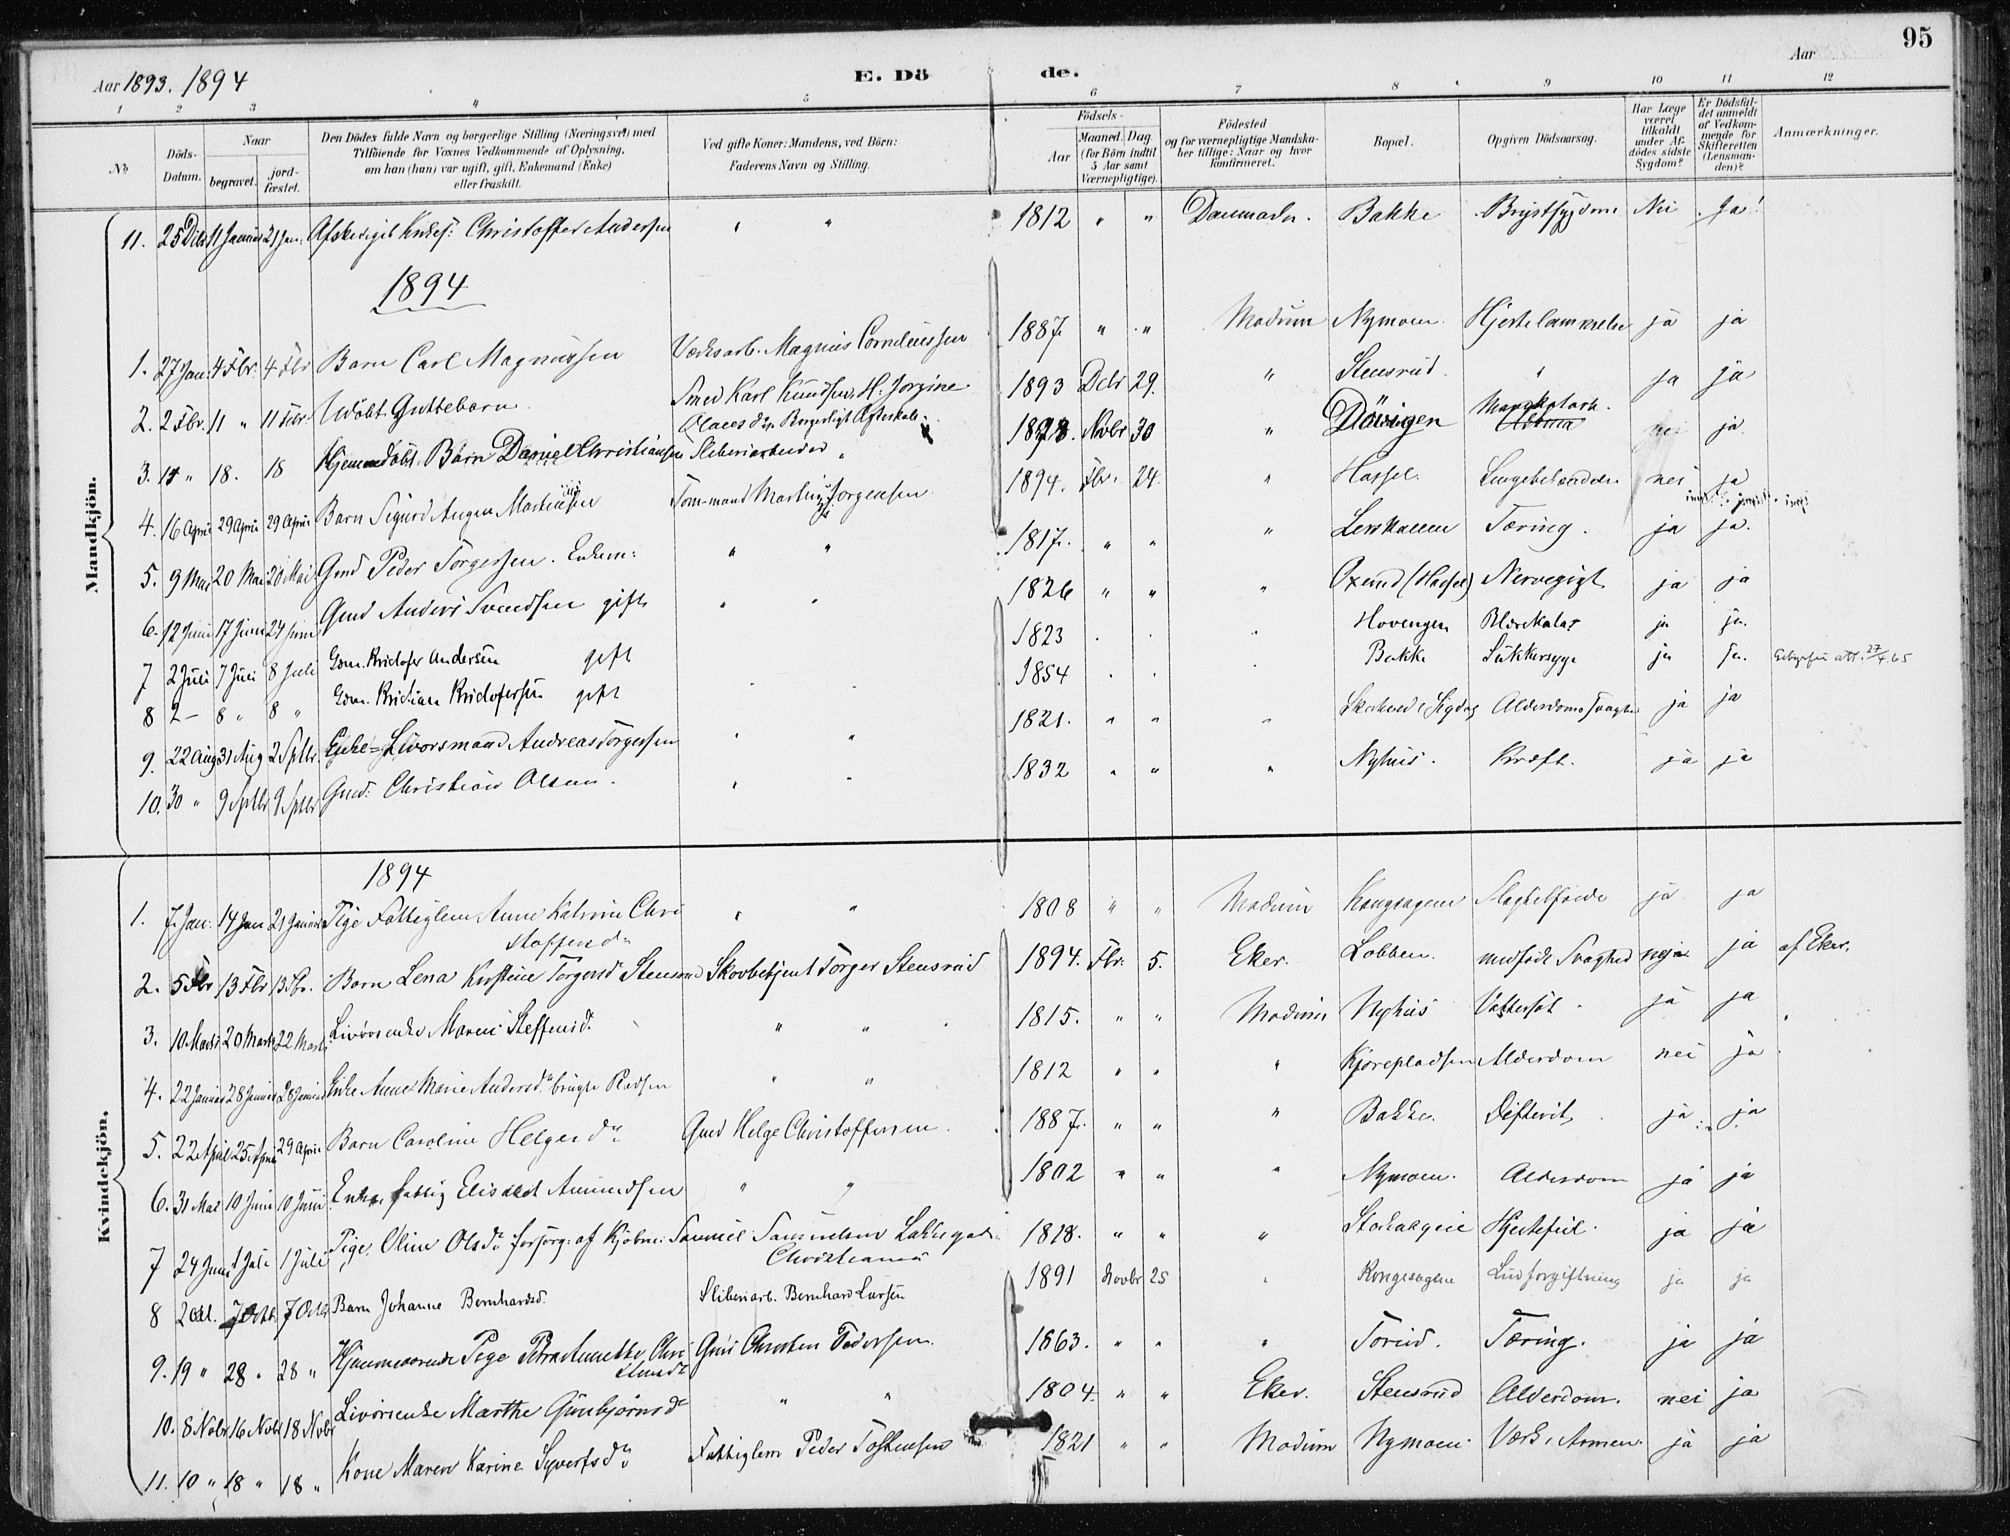 95
Aar 1893. 1894
E. Döde.
Aar
1 2 3 4 5 6 7 8 9 10 11 12
No
Döds-Datum.
Naar
begravet.
jord-fæstet.
Den Dödes fulde Navn og borgerlige Stilling (Næringsvei) med Tilföiende for Voxnes Vedkommende af Oplysning, om han (hun) var ugift, gift, Enkemand (Enke) eller fraskilt.
Ved gifte Koner: Mandens, ved Börn: Faderens Navn og Stilling.
Födsels-
Aar
Maaned. Dag
(for Börn indtil 5 Aar samt Værnepligtige).
Födested og for værnepligtige Mandskaber tillige: Naar og hvor konfirmeret.
Bopæl.
Opgiven Dödsaarsag.
Har Læge været tilkaldt under Afdödes sidste Sygdom?
Er Dödsfaldet anmeldt af Vedkommende for Skifteretten (Lensmanden)?
Anmærkninger.
Mandkjön.
11. 25 Dcbr 1 Januar 21 Jan. Christoffer Andersen " " 1812 " " Danmark. Bakke Brystsygdom Nei Ja!
1894
1. 27 Jan. 4 Fbr. 4 Fbr Barn Carl Magnussen Værksarb. Magnus Corneliussen 1887. " " Modum Nymoen. Hjertelammelse ja ja
2. 2 Fbr. 11 " 11 Fbr. Udöbt Guttebarn Smed Karl Knudsen, H. Jorgine Olausdr. Borgerligt Ægteskab. 1893 Dcbr 29. " Stensrud " ja ja
3. " 18. 18 Hjemmedöbt Barn Daniel Christiansen Sliberiarbeider 1893. Novbr 30 " Dövigen nei ja
4. 16 April 29 April 29 April Barn Sigurd Martinsen Tommand Martin Jorgensen 1894. Fbr. 24. " Hassel. Lungebetændelse nei ja
5. 9 Mai 20 Mai 20 Mai Gmd Peder Torgersen. Enkem: " " 1817. " " " Tæring. ja ja.
6. 12 Juni 17 Juni 24 Juni Gmd Anders Svendsen gift " " 1826 " " " (Hassel) Nervegigt ja ja
7 2 Juli 7 Juli 8 Juli Gdm. Kristofer Andersen gift 1823 Hovengen Blærekatar ja ja.
8 2 – 8 " 8 " Gdm. Kristian Kristofersen gift 1854 Bakke Sukkersyge ja ja. att. 27/4 65
9. 22 Aug 31 Aug 2 Sptbr. Andreas Torgersen " " 1821. " " " Sigdal Alderdomssvaghed ja ja
10. 30 " 9 Sptbr 9 Sptbr Gmd: Christian Olsen. " " 1832 " " " Nyhus. Kræft. ja ja
Kvindekjön.
1894
1. 7. Jan. 14 Jan 21 Januar Pige Fattiglem Anne Katrine Christoffersdr " " 1808 " " Modum Kongsagene Slagtilfælde ja ja
2. 5 Fbr 13 Fbr 13 Fbr. Barn Lena Kirstine Torgersdr. Stensrud Skovbetjent Torger Stensrud 1894. Fbr. 5. Eker. Lobben. medfödt Svaghed ja af Eker.
3. 10 Marts 20 Marts 22 Marts Livörsenke Maren Steffensdr. " " 1815. " " Modum Nyhus Vattersot. ja ja
4. 22 Januar 28 Januar 28 Januar Enke Anne Marie Andersdr. Pladsen " " 1812 " " " Kjörepladsen Alderdom nei ja
5. 22 April 25 April 29 April Barn Caroline Helgesdr. Gmd Helge Christoffersen. 1887. " " " Bakke. Difterit ja ja
6. 31 Mai 10 Juni 10 Juni Enke, fattig Elisabet Amundsen " " 1802 " " " Nymoen. Alderdom ja ja
7 24 Juni 1 Juli 1 Juli Pige. Oline Olsdr. forsörg. af Kjöbm: Samuel Samuelsen Lakkegad. Christiania 1828. " " " Hjertefeil. ja ja
8 2 Okt. 7 Octbr. 7 Octbr Barn Johanne Bernhardsd. Sliberiarb. Bernhard Larsen 1891 Novbr 25 " Kongssagene Ludforgiftning ja ja
9. 19 " 28 " 28 " Hjemmeværende Pige Petra Annette Christensdr Gmd Christen Pedersen. 1863. " " " Tæring. ja ja
10. 8 Nobr 16 Nobr 18 Nobr Livörsenke Marthe Gunbjörnsdr " " 1804 " " Eker. Stensrud Alderdom. nei ja
11. 10 " 18 " 18 " Kone Maren Karine Syvertsdr. Fattiglem Peder Tostensen 1821 " " Modum Nymoen. Værk i Armen ja ja